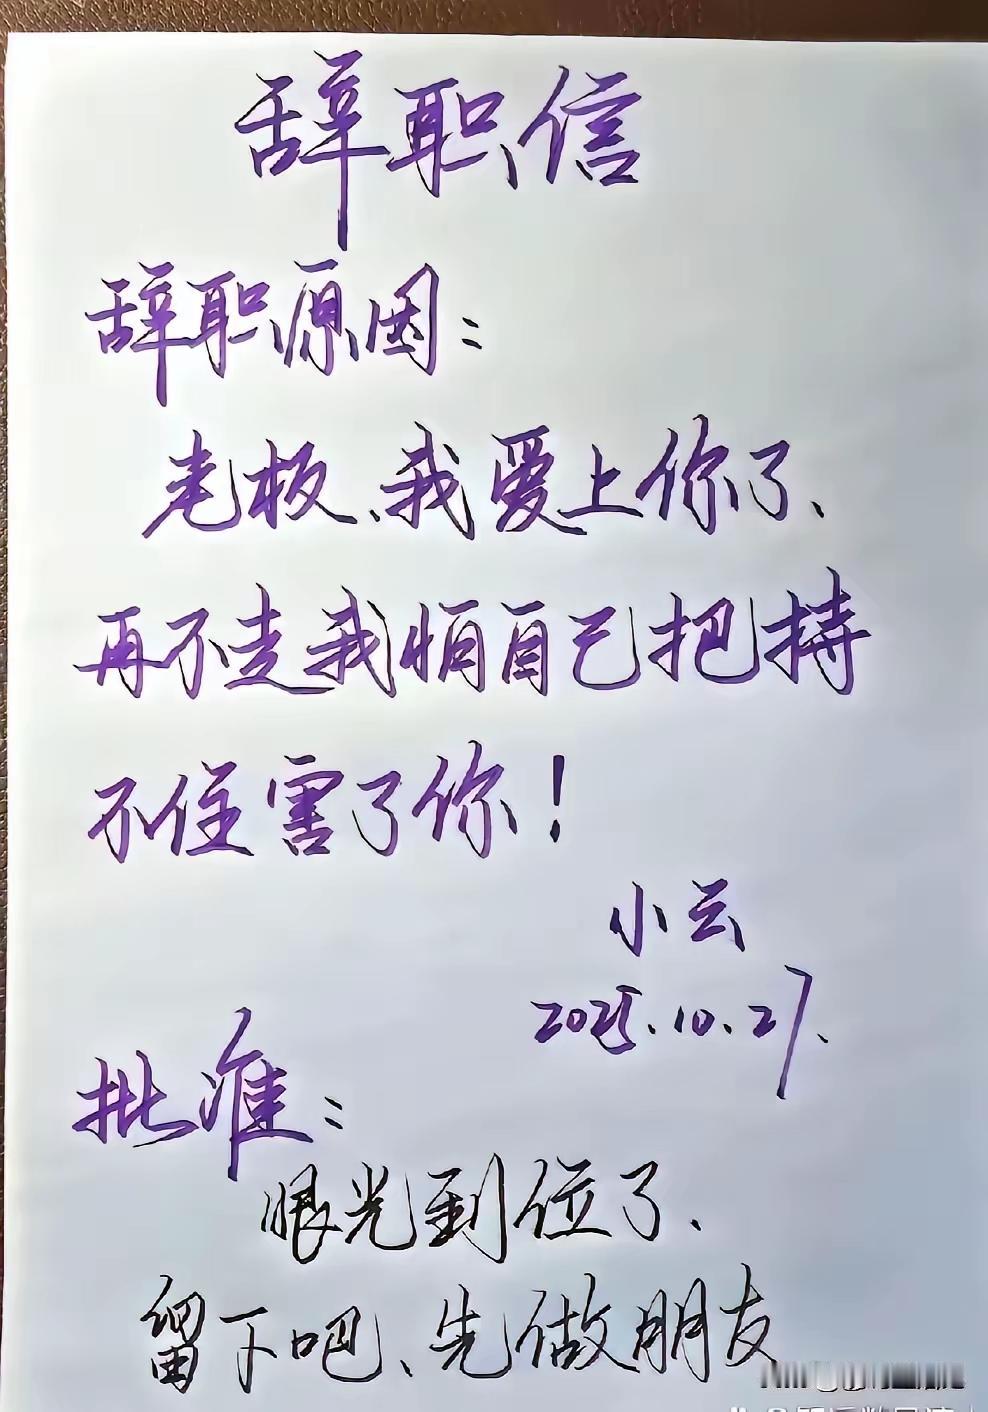 辞职信
辞职原因：
老板、我爱上你了、
再不走我怕自己把持
不住害了你！
小云
2025.10.27.
批准：
眼光到位了、
留下吧、先做朋友